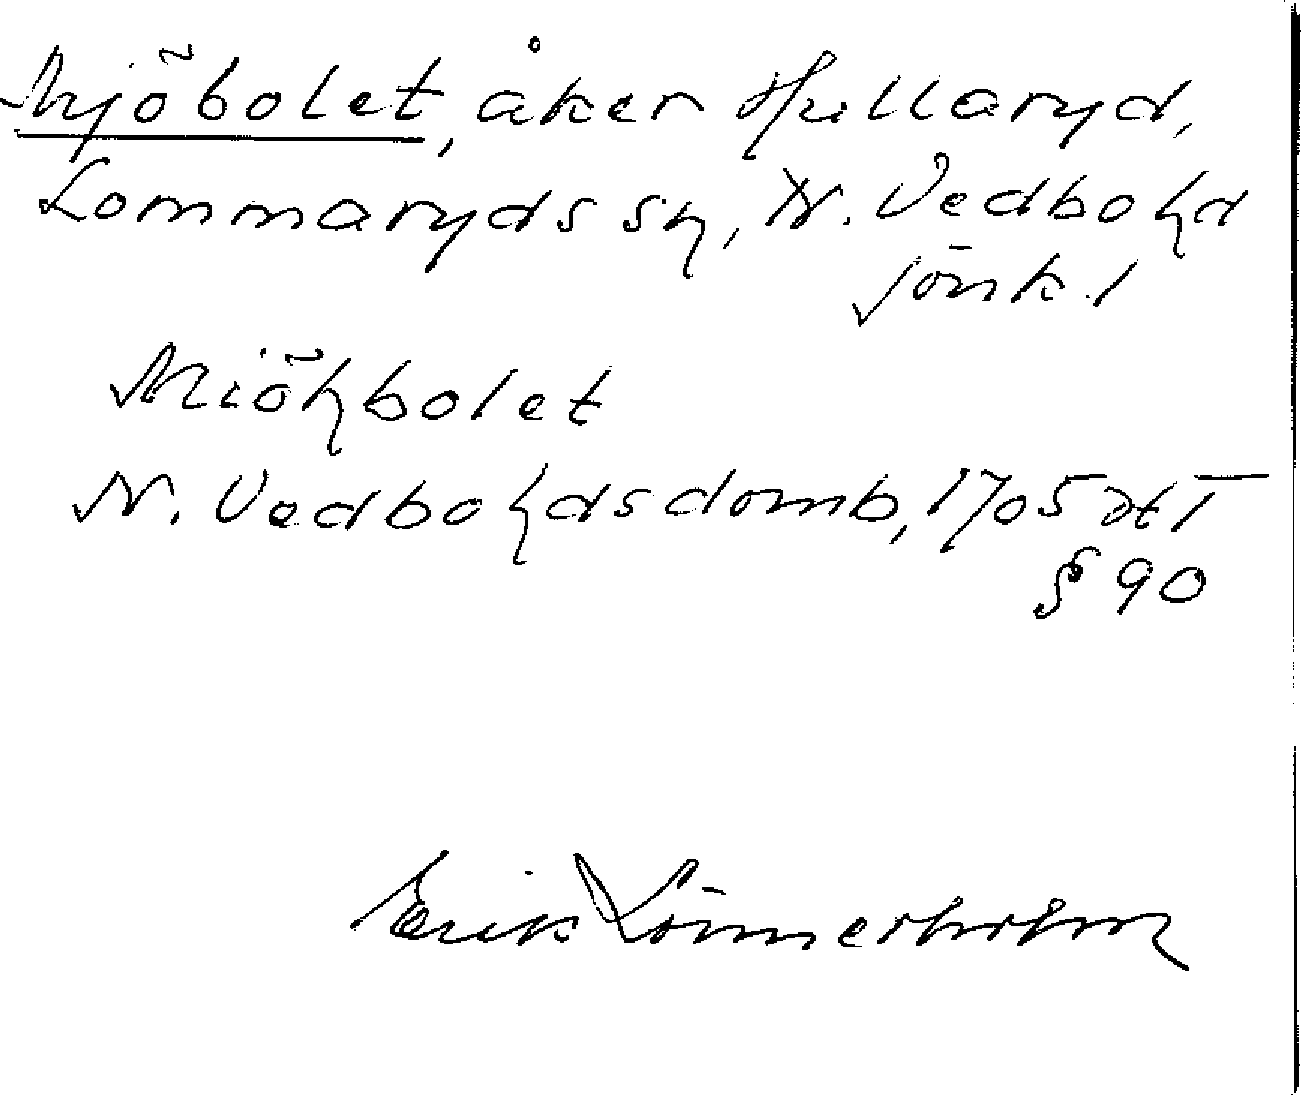 Mjöbolet, åker Hullaryd,
Lommaryds sn, N. Vedbo hd
Jönk. l
Miöhbolet
N. Vedbo hdsdomb, 1705 vt I
§ 90
Erik Lönnerholm